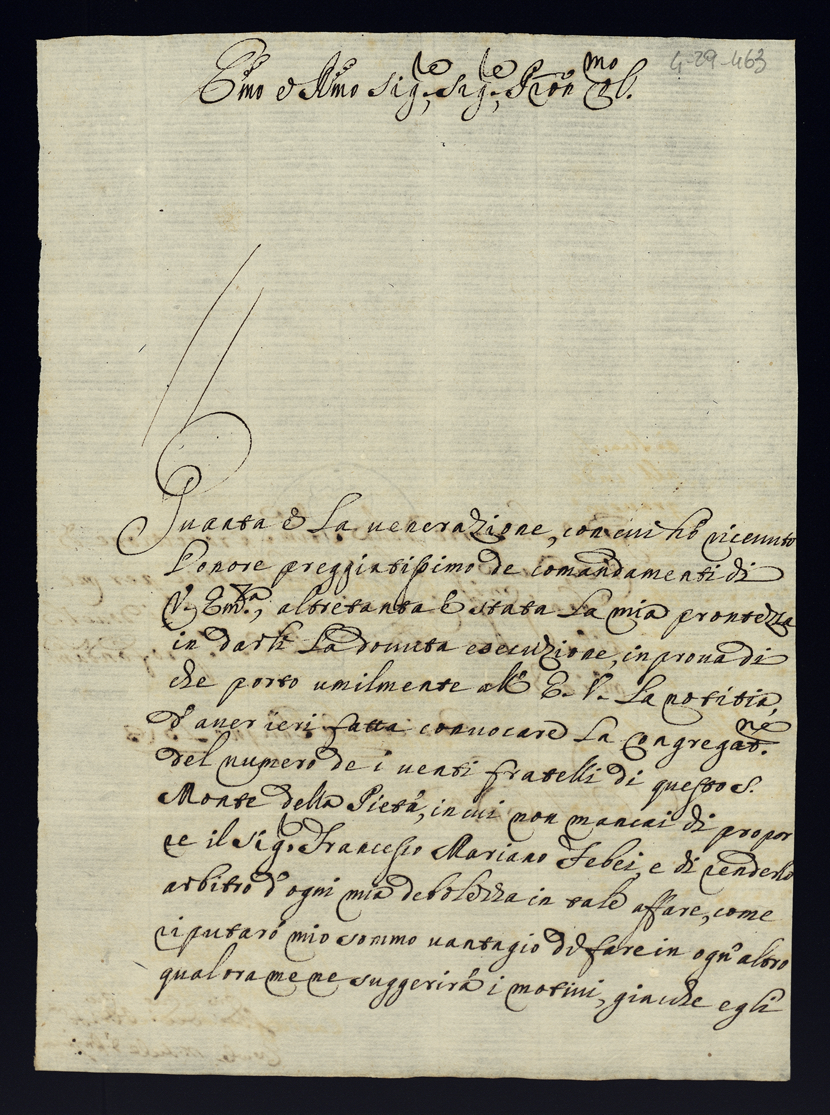 4-29-463
Emo e Rmo Sig.re Sig.re Pron mo Col.
Quanta è la venerazione, con cui hò ricevuto
l'onore preggiatissimo de comandamenti di
V. Em.za, altretanta è stata la mia prontezza
in darli la dovuta esecuzione, in prova di
che porto umilmente all' E. V. la notitia,
d'aver ieri fatta convocare la Congregat.ne
del numero de i venti fratelli di questo S.
Monte della Pietà, in cui non mancai di propor
re il Sig.r Francesco Mariano Febei, e di renderlo
arbitro d'ogni mia debolezza in tale affare, come
riputarò mio sommo vantagio di fare in ogn'altro
qualora me ne suggerirà i motivi, giache egli